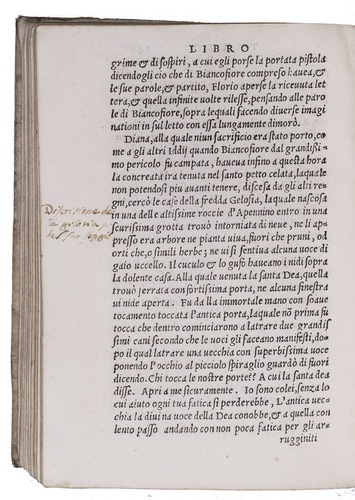 LIBRO
grime & di sospiri, a cui egli porse la portata pistola
dicendogli cio che di Biancofiore compreso hauea, &
le sue parole, & partito, Florio aperse la riceuuta let
tera, & quella infinite uolte rilesse, pensando alle paro
le di Biancofiore, sopra lequali facendo diuerse imagi
nationi in sul letto con essa lungamente dimorò.
Diana, alla quale niun sacrificio era stato porto, co
me a gli altri Iddij quando Biancofior dal grandissi
mo pericolo fu campata, haueua infino a questa hora
la concreata ira tenuta nel santo petto celata, laquale
non potendosi piu auanti tenere, discesa da gli alti re
gni, cercò le case della fredda Gelosia, laquale nascosa
in una delle altissime roccie d'Apennino entro in una
scurissima grotta trouò intorniata di neue, ne li ap
presso era arbore ne pianta uiua, fuori che pruni, od
orti che, o simili herbe; ne ui si sentiua alcuna uoce di
gaio uccello. Il cuculo & lo gufo haueano i nidi sopra
la dolente casa. Alla quale uenuta la santa Dea, quella
trouò serrata con fortissima porta, ne alcuna finestra
ui uide aperta. Fu da lla immortale mano con soaue
toccamento toccata l'antica porta, laquale nõ prima fu
tocca che dentro cominciarono a latrare due grandis
simi cani secondo che le uoci gli faceano manifesti, do
po il qual latrare una uecchia con superbissima uoce
ponendo l'occhio al picciolo spiraglio guardò di fuori
dicendo. Chi tocca le nostre porte? A cui la santa dea
disse. Apri a me sicuramente. Io sono colei, senza lo
cui aiuto ogni tua fatica si perderebbe, L'antica uec
chia la diuina uoce della Dea conobbe, & a quella con
lento passo andando con non poca fatica per gli ar-
rugginiti